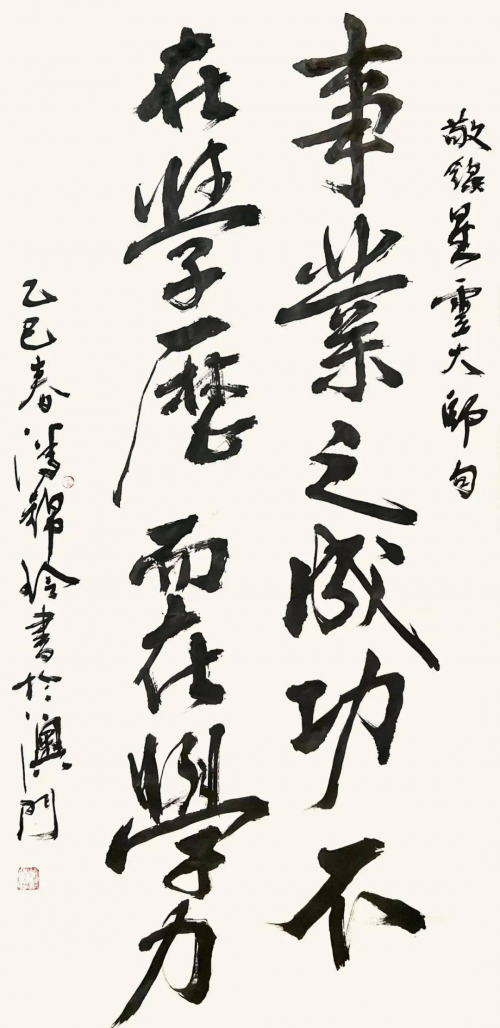 敬錄星雲大師句
事業之成功不
在學歷而在學力
乙巳春潘錦玲書於澳門